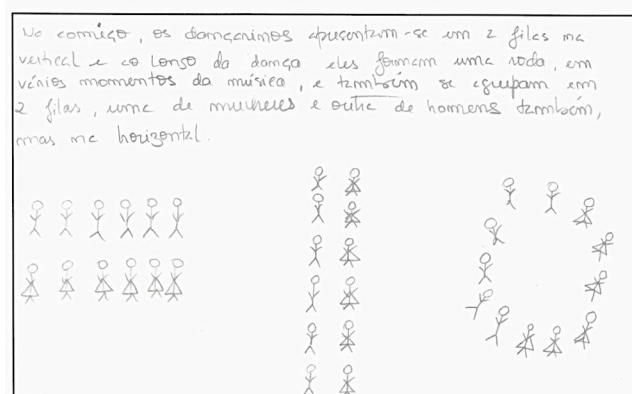 No começo, os dançarinos apresentam-se em 2 filas na
vertical e ao longo da dança eles formam uma roda, em
vários momentos da música, e também se agrupam em
2 filas, uma de mulheres e outra de homens também,
mas na horizontal.